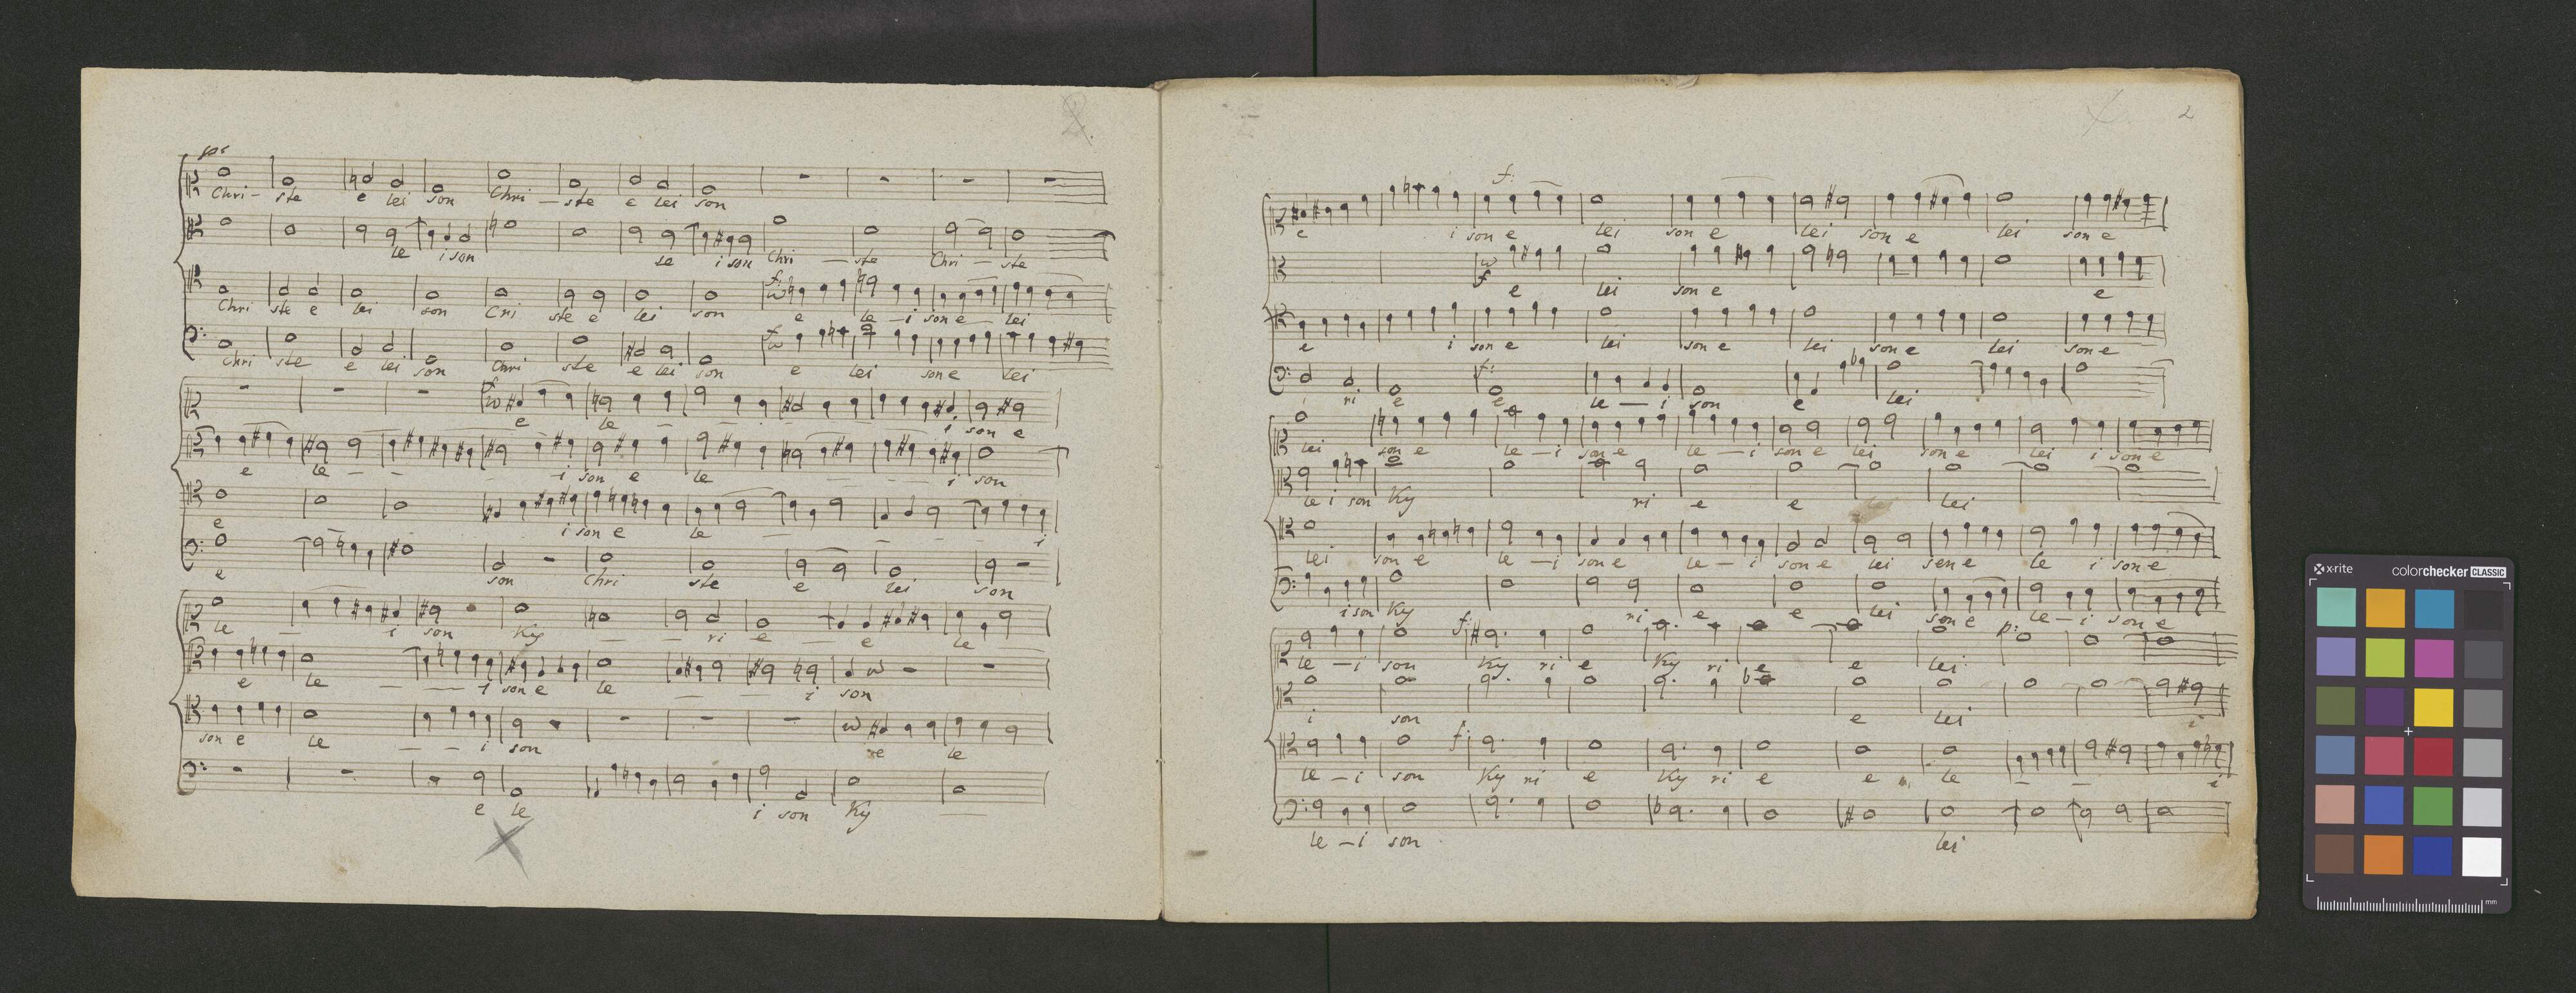 Chri - ste e lei son Chri - ste e lei son
le i son le i son Chri - ste Chri - ste
Chri ste e lei son Cri ste e lei son f: e le - i son e lei
Chri ste e lei son Chri ste e lei son f e lei son e lei
f e le i son e
e le - - i son e le i son
e i son e le i
e son Chri ste e lei son
le i son Ky ri e e le
e le i son e le i son
son e le i son e le
e le i son Ky
2
f:
e i son e lei son e lei son e lei son e
f
e lei son e e
e i son e lei son e lei son e lei son e
f:
ri e e le - i son e lei
lei son e le - i son e le - i son e lei son e lei i son e
le i son Ky ri e e lei
lei son e le - i son e le - i son e lei sen e le i son e
i son Ky ri e e lei son e le - i son e
f: p:
le - i son Ky ri e Ky ri e e lei
i son e lei i
f:
le - i son Ky ri e Ky ri e e le - - i
le - i son lei
x-rite colorchecker CLASSIC
mm